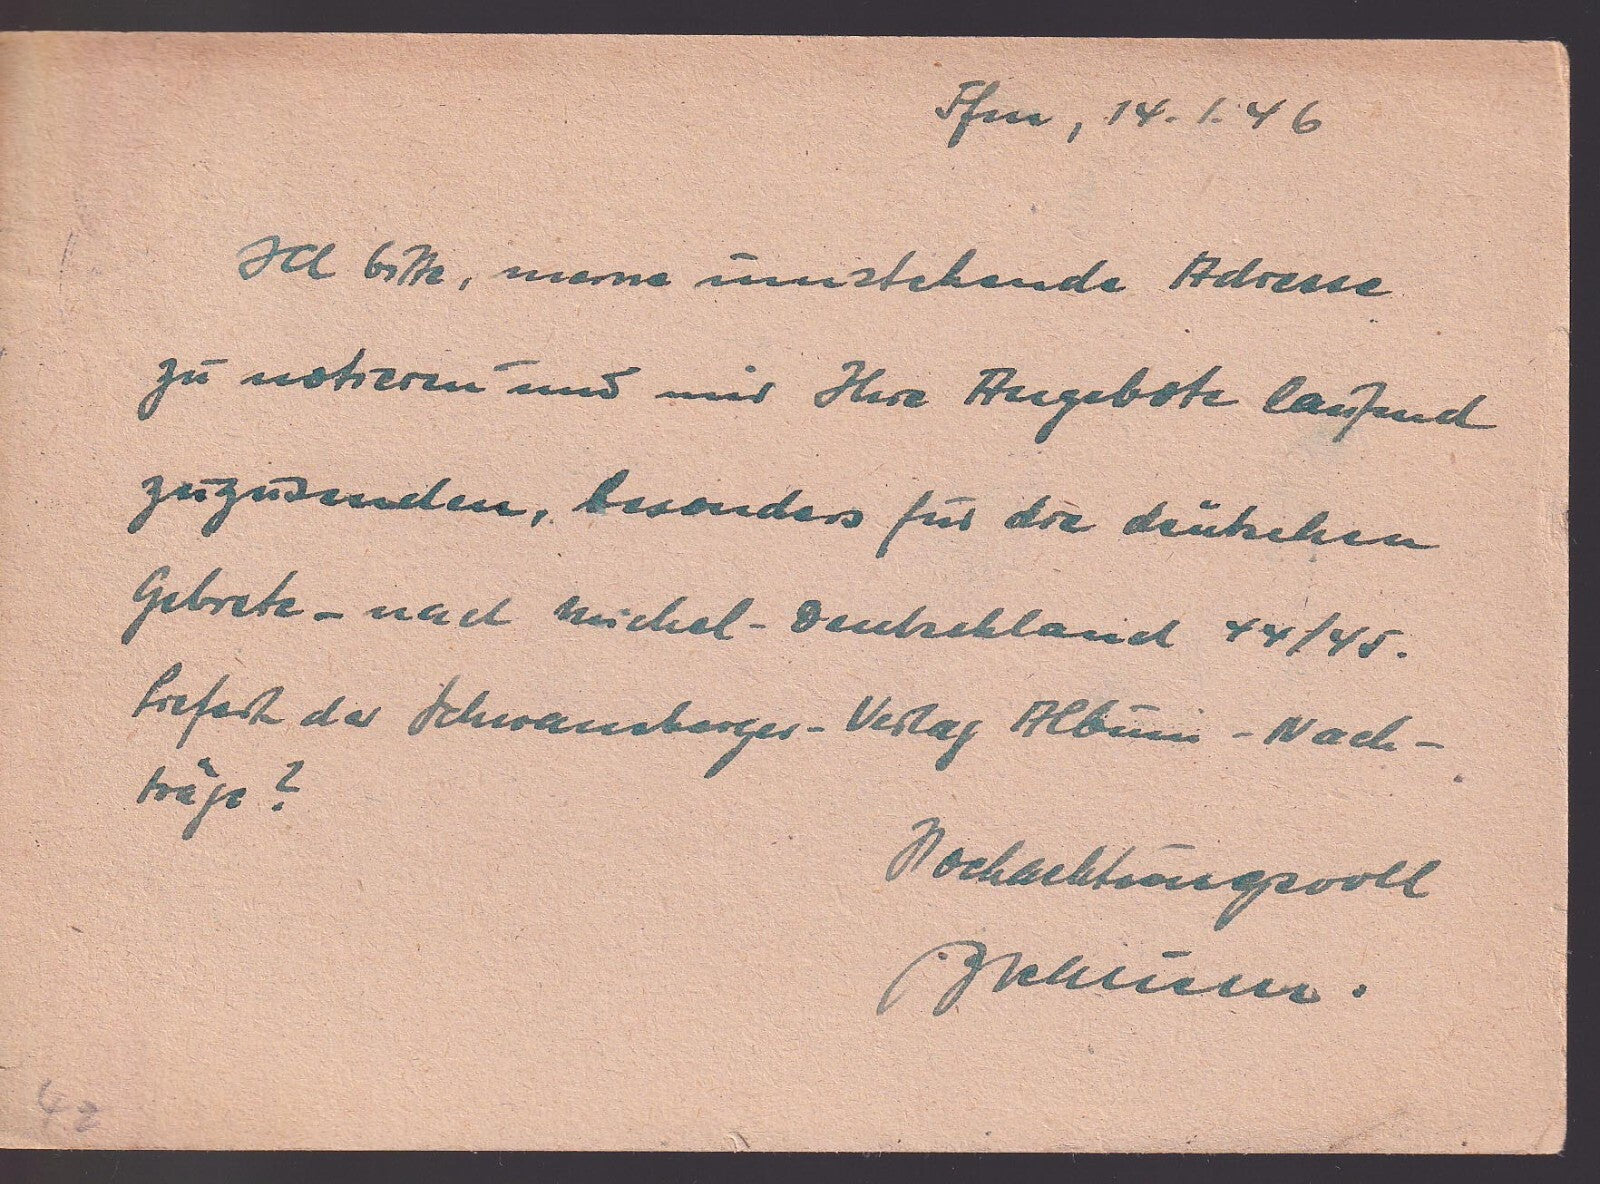 Ffm, 14.1.46
Ich bitte, meine umstehende Adresse
zu notieren und mir Ihre Angebote laufend
zuzusenden, besonders für die deutschen
Gebiete - nach Michel-Deutschland 44/45.
Liefert der Schwaneberger-Verlag Album-Nach-
träge?
Hochachtungsvoll
42